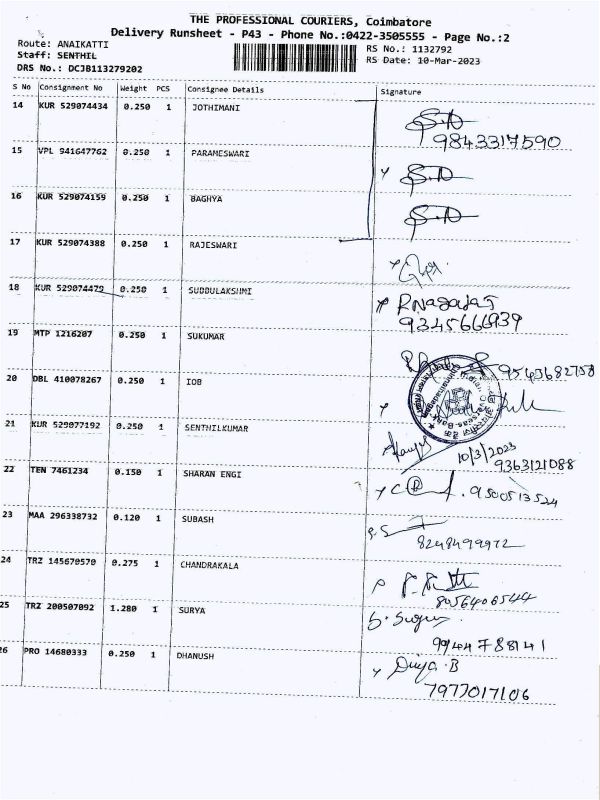 THE PROFESSIONAL COURIERS, Coimbatore
Delivery Runsheet - P43 - Phone No.:0422-3505555 - Page No.:2
Route: ANAIKATTI
Staff: SENTHIL
DRS No.: DCJB113279202
RS No.: 1132792
RS Date: 10-Mar-2023
S No Consignment No Weight PCS Consignee Details Signature
14 KUR 529074434 0.250 1 JOTHIMANI
9843317590
15 VPL 941647762 0.250 1 PARAMESWARI
16 KUR 529074159 0.250 1 BAGHYA
17 KUR 529074388 0.250 1 RAJESWARI
18 KUR 529074479 0.250 1 SUBBULAKSHMI
R Nagaraj
9345666939
19 MTP 1216207 0.250 1 SUKUMAR
9543682758
20 DBL 410078267 0.250 1 IOB
21 KUR 529077192 0.250 1 SENTHILKUMAR
10/3/2023
9363121088
22 TEN 7461234 0.150 1 SHARAN ENGI
9500513524
23 MAA 296338732 0.120 1 SUBASH
8248499972
24 TRZ 145670570 0.275 1 CHANDRAKALA
8056406544
25 TRZ 200507092 1.280 1 SURYA
9944788141
26 PRO 14680333 0.250 1 DHANUSH
Divya.B
7977017106